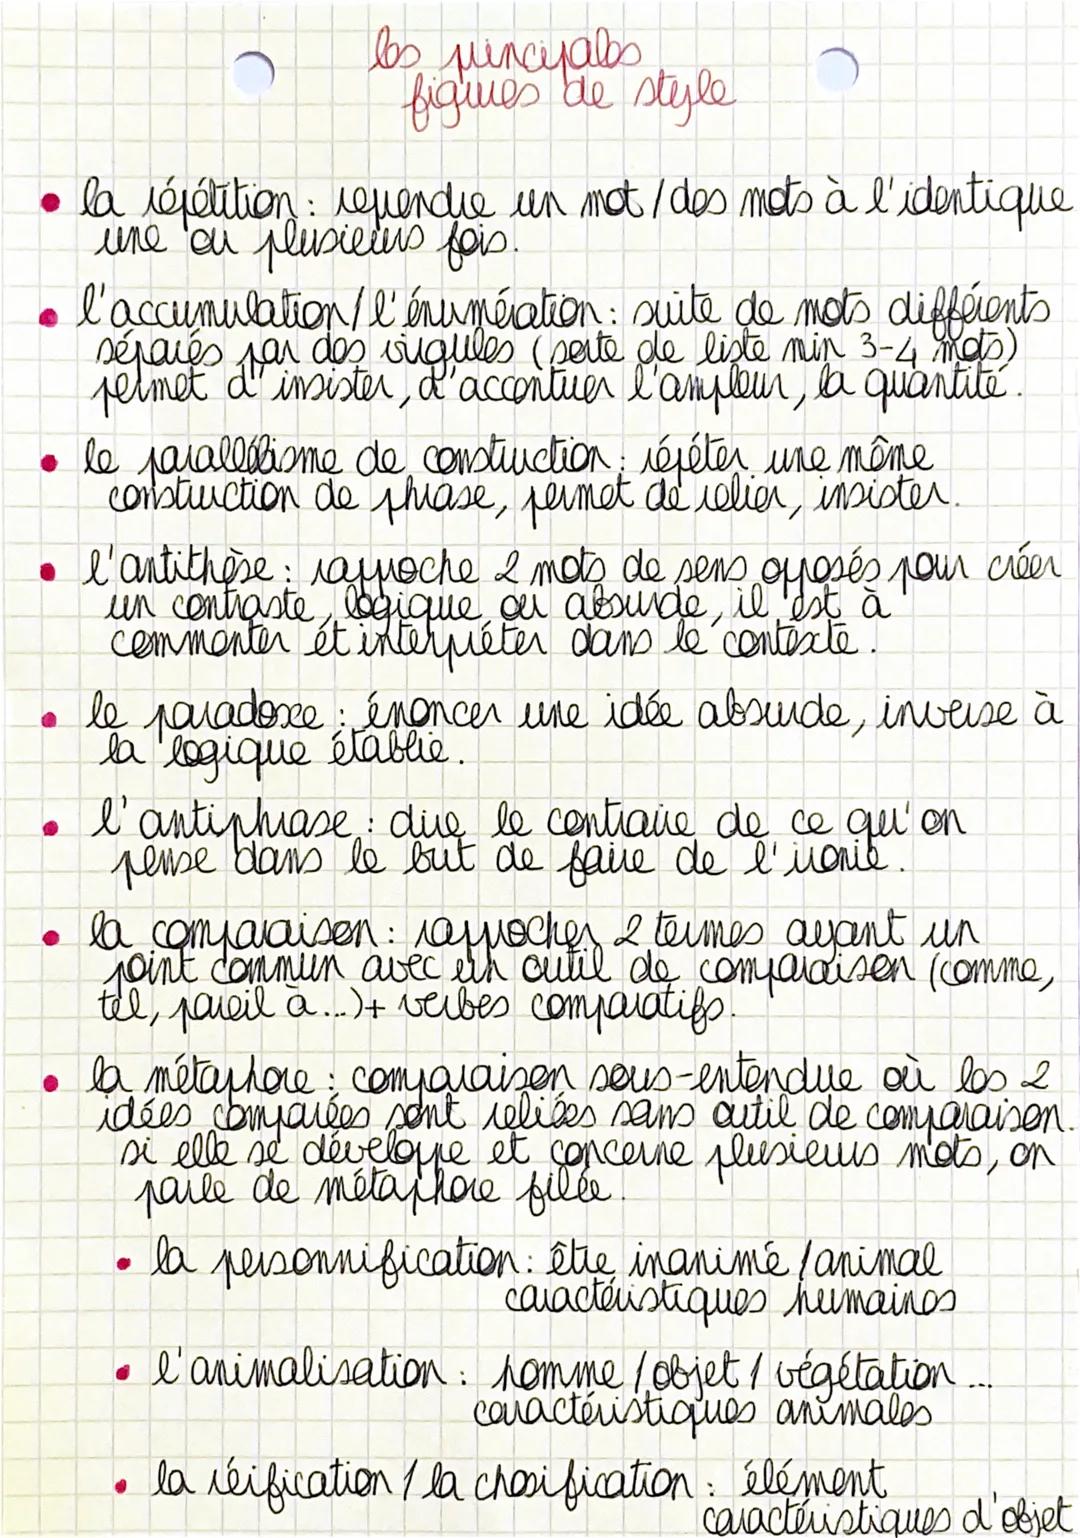 les principales
figures de style
• la répétition : reprendre un mot / des mots à l'identique
une ou plusieurs fois.
• l'accumulation / l'énumération : suite de mots différents
séparés par des virgules (sorte de liste min 3-4 mots)
permet d'insister, d'accentuer l'ampleur, la quantité.
• le parallélisme de construction : répéter une même
construction de phrase, permet de relier, insister.
• l'antithèse : rapproche 2 mots de sens opposés pour créer
un contraste, logique ou absurde, il est à
commenter et interpréter dans le contexte.
• le paradoxe : énoncer une idée absurde, inverse à
la logique établie.
• l'antiphrase : dire le contraire de ce qu'on
pense dans le but de faire de l'ironie.
• la comparaison : rapprocher 2 termes ayant un
point commun avec un outil de comparaison (comme,
tel, pareil à...) + verbes comparatifs.
• la métaphore : comparaison sous-entendue où les 2
idées comparées sont reliées sans outil de comparaison.
si elle se développe et concerne plusieurs mots, on
parle de métaphore filée.
• la personnification : être inanimé / animal
caractéristiques humaines
• l'animalisation : homme / objet / végétation ...
caractéristiques animales
• la réification / la chosification : élément
caractéristiques d'objet